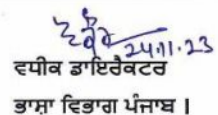 24.11.23
ਵਧੀਕ ਡਾਇਰੈਕਟਰ
ਭਾਸ਼ਾ ਵਿਭਾਗ ਪੰਜਾਬ।